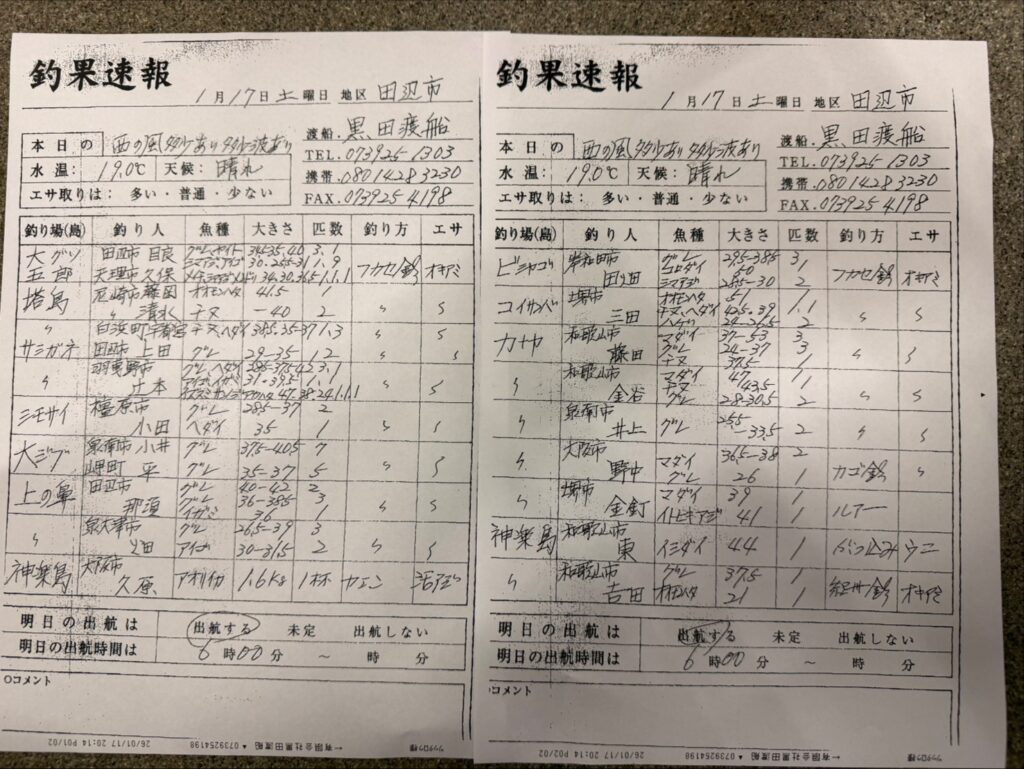 釣果速報
1月17日土曜日 地区 田辺市
本日の 西の風多少あり多少波あり
渡船.黒田渡船
水温: 19.0℃ 天候: 晴れ
TEL.073925 1303
携帯.080 1428 3230
エサ取りは: 多い・普通・少ない
FAX.073925 4198
釣り場(島) 釣り人 魚種 大きさ 匹数 釣り方 エサ
大グツ 田辺市 目良
五郎 天理市 久保 フカセ釣 オキアミ
塔島 尼崎市 藤岡 オオモンハタ 41.5 1
〃 清水 チヌ -40 2 〃 〃
〃 白浜町 宇都宮 チヌ、ヘダイ 38.5.35-37 1.3 〃 〃
サシガネ 田辺市 上田 グレ 29-35 12 〃 〃
羽曳野市 グレ、ヘダイ
〃 辻本 〃 〃
シモサイ 橿原市 グレ 28.5-37 2
小田 ヘダイ 35 1 〃 〃
大ジブ 泉南市 小井 グレ 37.5-40.5 7
岬町 平 グレ 35-37 5 〃 〃
上の軍 田辺市 グレ 40-42 2
那須 グレ 36-38.5 3 〃 〃
イガミ 36 1
泉大津市 グレ 26.5-39 3
〃 畑 アイゴ 30-31.5 2 〃 〃
神楽島 大阪市
久原 アオリイカ 1.6Kg 1杯 ヤエン 活アジ
明日の出航は 出航する 未定 出航しない
明日の出航時間は 6時00分 ~ 時 分
○コメント
26/01/17 20:14 P01/02
←有限会社黒田渡船 ▲ 0739254198
釣果速報
1月17日土曜日 地区 田辺市
本日の 西の風多少あり多少波あり
渡船.黒田渡船
水温: 19.0℃ 天候: 晴れ
TEL.073925 1303
携帯.080 1428 3230
エサ取りは: 多い・普通・少ない
FAX.073925 4198
釣り場(島) 釣り人 魚種 大きさ 匹数 釣り方 エサ
ビシャゴ 岸和田市 グレ 29.5-38.5 3
コロダイ 50 1
田畑 シマアジ 28.5-30 2 フカセ釣 オキアミ
コイサンバ 堺市 オオモンハタ 51 1
三田 チヌ、ヘダイ 42.5.39 1.1 〃 〃
カナヤ 和歌山市 マダイ 37-53 3
藤田 グレ 24-37 3 〃 〃
チヌ 37.5 1
〃 和歌山市 マダイ 47 1
金谷 チヌ 43.5 1 〃 〃
グレ 28-30.5 2
〃 泉南市 25.5
井上 グレ -33.5 2 〃 〃
〃 大阪市 マダイ 36.5-38 2
野中 グレ 26 1 カゴ釣 〃
〃 堺市 マダイ 39 1
金釘 イトヒキアジ 41 1 ルアー
神楽島 和歌山市
東 イシダイ 44 1 ウニ
〃 和歌山市 グレ 37.5 1
吉田 オオモンハタ 21 1 オキアミ
明日の出航は 出航する 未定 出航しない
明日の出航時間は 6時00分 ~ 時 分
○コメント
26/01/17 20:14 P02/02
←有限会社黒田渡船 ▲ 0739254198